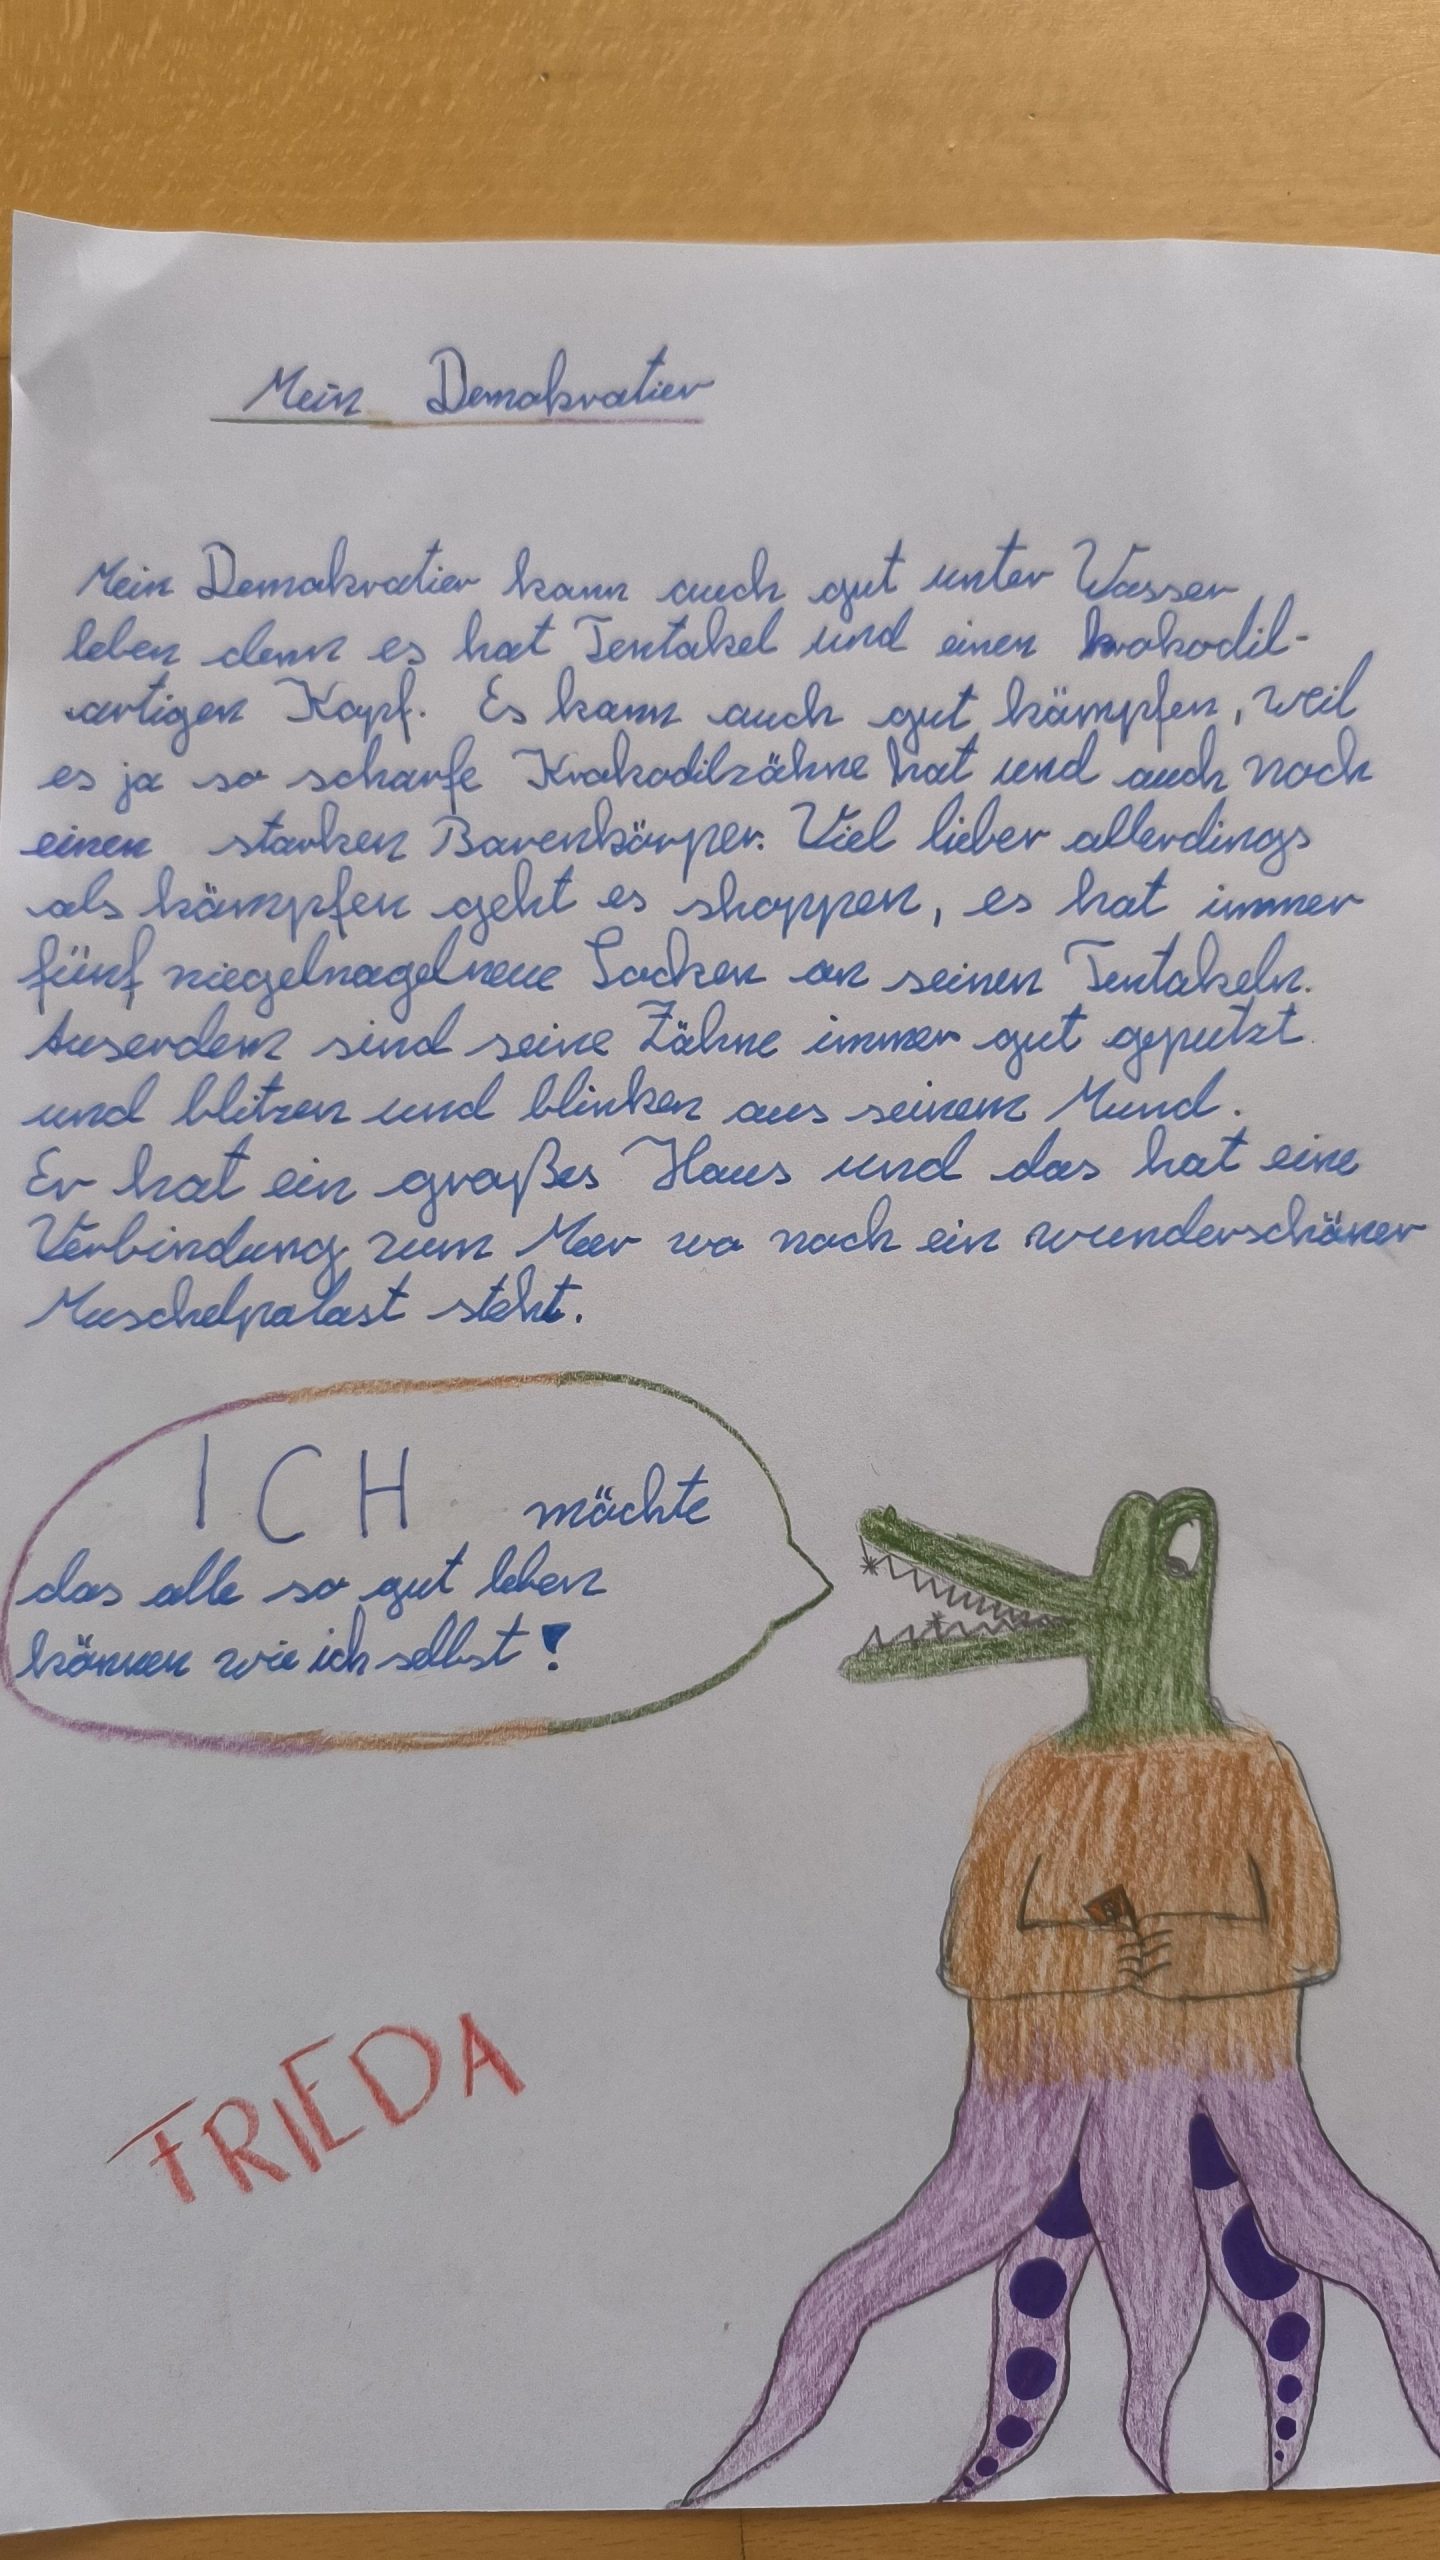 Mein Demokratier
Mein Demokratier kann auch gut unter Wasser
leben denn es hat Tentakel und einen krokodil-
artigen Kopf. Es kann auch gut kämpfen, weil
es ja so scharfe Krokodilzähne hat und auch noch
einen starken Barenkörper. Viel lieber allerdings
als kämpfen geht es shoppen, es hat immer
fünf niegelnagelneue Socken an seinen Tentakeln.
Auserdem sind seine Zähne immer gut geputzt
und blitzen und blinken aus seinem Mund.
Er hat ein großes Haus und das hat eine
Verbindung zum Meer wo noch ein wunderschöner
Muschelpalast steht.
ICH möchte
das alle so gut leben
können wie ich selbst!
FRIEDA